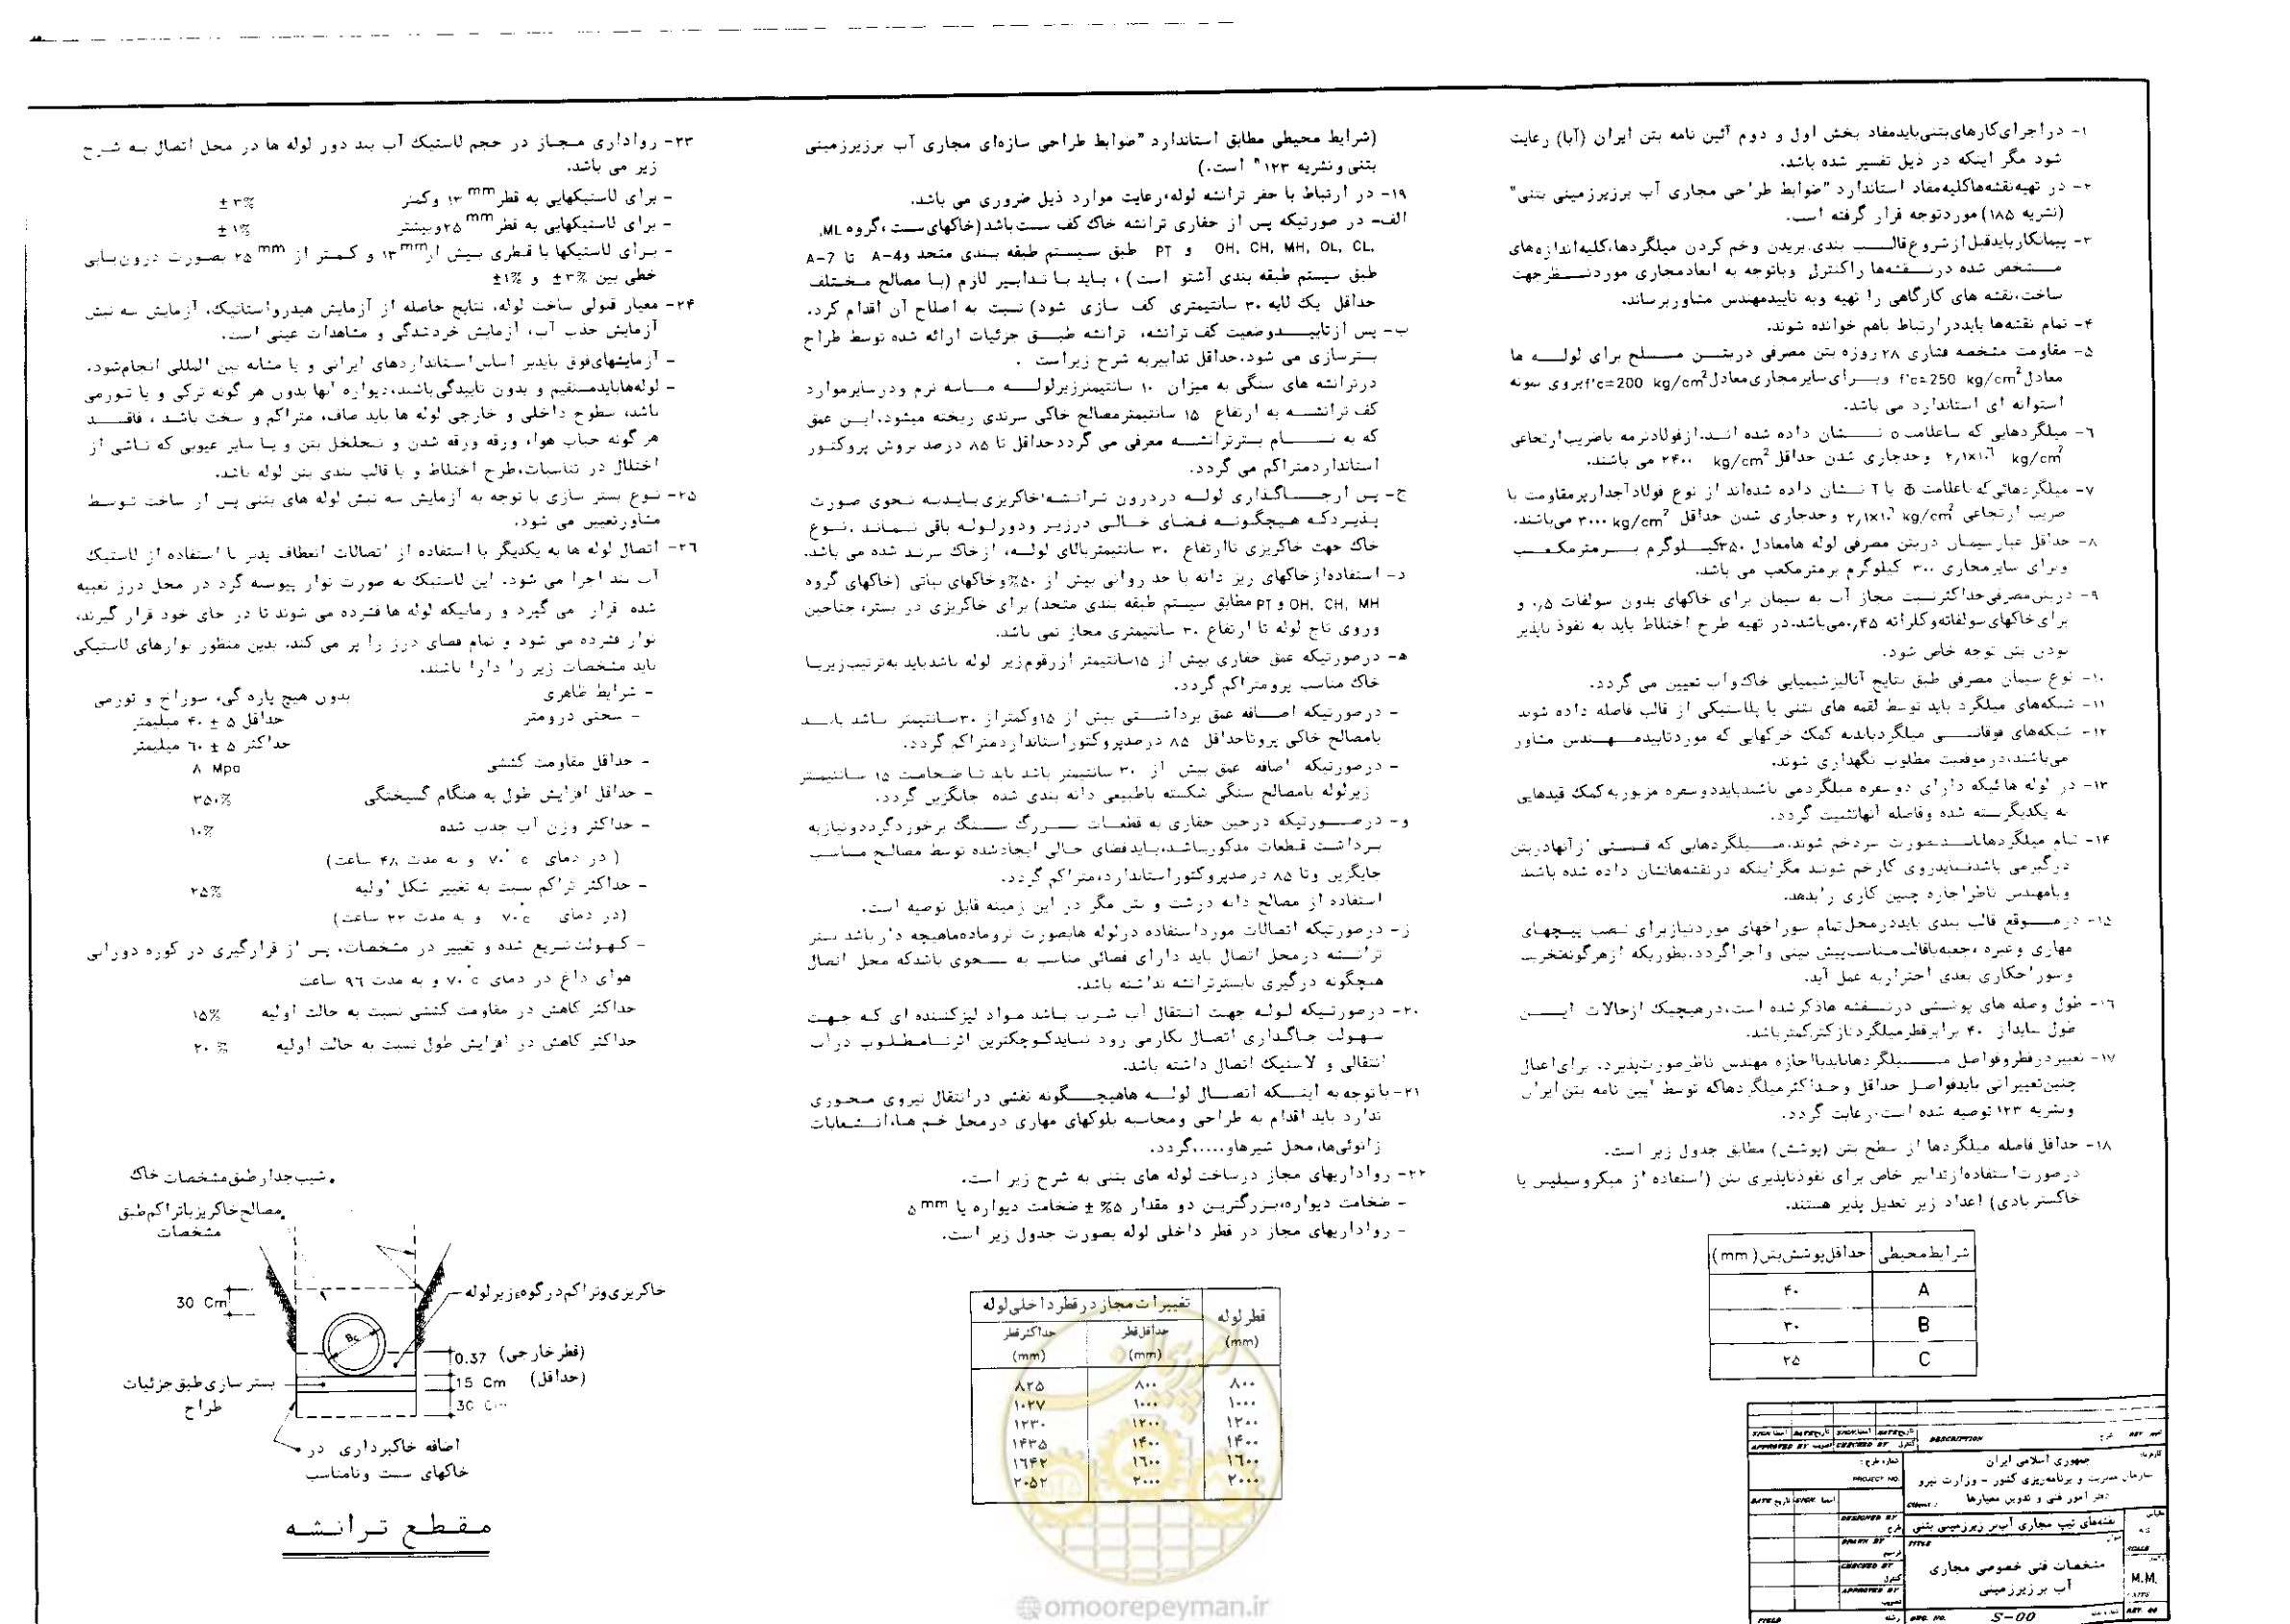 ۱- در اجرای کارهای بتنی باید مفاد بخش اول و دوم آئین نامه بتن ایران (آبا) رعایت
شود مگر اینکه در ذیل تفسیر شده باشد.
۲- در تهیه نقشه‌ها کلیه مفاد استاندارد "ضوابط طراحی مجاری آب بر زیرزمینی بتنی"
(نشریه ۱۸۵) مورد توجه قرار گرفته است.
۳- پیمانکار باید قبل از شروع قالب بندی، بریدن و خم کردن میلگردها، کلیه اندازه‌های
مشخص شده در نقشه‌ها را کنترل و با توجه به ابعاد مجاری مورد نظر جهت
ساخت، نقشه های کارگاهی را تهیه و به تایید مهندس مشاور برساند.
۴- تمام نقشه‌ها باید در ارتباط باهم خوانده شوند.
۵- مقاومت مشخصه فشاری ۲۸ روزه بتن مصرفی در بتن مسلح برای لوله ها
معادل f'c=250 kg/cm² و برای سایر مجاری معادل f'c=200 kg/cm² بر روی نمونه
استوانه ای استاندارد می باشد.
۶- میلگردهایی که با علامت ه نشان داده شده اند، از فولاد نرمه با ضریب ارتجاعی
۲٫۱x۱۰⁶ kg/cm² و حد جاری شدن حداقل ۲۴۰۰ kg/cm² می باشند.
۷- میلگردهائی که با علامت Φ یا T نشان داده شده‌اند از نوع فولاد آجدار پر مقاومت با
ضریب ارتجاعی ۲٫۱x۱۰⁶ kg/cm² و حد جاری شدن حداقل ۳۰۰۰ kg/cm² می باشند.
۸- حداقل عیار سیمان در بتن مصرفی لوله ها معادل ۳۵۰ کیلوگرم بر متر مکعب
و برای سایر مجاری ۳۰۰ کیلوگرم بر متر مکعب می باشد.
۹- در بتن مصرفی حداکثر نسبت مجاز آب به سیمان برای خاکهای بدون سولفات ۰٫۵ و
برای خاکهای سولفاته و کلراته ۰٫۴۵ می باشد. در تهیه طرح اختلاط باید به نفوذ ناپذیر
بودن بتن توجه خاص شود.
۱۰- نوع سیمان مصرفی طبق نتایج آنالیز شیمیایی خاک و آب تعیین می گردد.
۱۱- شبکه‌های میلگرد باید توسط لقمه های بتنی یا پلاستیکی از قالب فاصله داده شوند
۱۲- شبکه‌های فوقانی میلگرد باید به کمک خرکهایی که مورد تایید مهندس مشاور
می باشند، در موقعیت مطلوب نگهداری شوند.
۱۳- در لوله هائیکه دارای دو سفره میلگرد می باشند باید دو سفره مزبور به کمک قیدهایی
به یکدیگر بسته شده و فاصله آنها تثبیت گردد.
۱۴- تمام میلگردها باید بصورت سرد خم شوند، میلگردهایی که قسمتی از آنها در بتن
درگیر می باشد نباید روی کار خم شوند مگر اینکه در نقشه‌ها نشان داده شده باشد
و یا مهندس ناظر اجازه چنین کاری را بدهد.
۱۵- در موقع قالب بندی باید در محل تمام سوراخهای مورد نیاز برای نصب پیچهای
مهاری و غیره، جعبه یا قالب مناسب پیش بینی و اجرا گردد. بطوریکه از هرگونه تخریب
و سوراخکاری بعدی احتراز به عمل آید.
۱۶- طول وصله های پوششی در نقشه ها ذکر شده است، در هیچیک از حالات این
طول نباید از ۴۰ برابر قطر میلگرد نازکتر کمتر باشد.
۱۷- تغییر در قطر و فواصل میلگردها باید با اجازه مهندس ناظر صورت پذیرد. برای اعمال
چنین تغییراتی باید فواصل حداقل و حداکثر میلگردها که توسط آیین نامه بتن ایران
و نشریه ۱۲۳ توصیه شده است، رعایت گردد.
۱۸- حداقل فاصله میلگردها از سطح بتن (پوشش) مطابق جدول زیر است.
در صورت استفاده از تدابیر خاص برای نفوذ ناپذیری بتن (استفاده از میکروسیلیس یا
خاکستر بادی) اعداد زیر تعدیل پذیر هستند.
شرایط محیطی حداقل پوشش بتن (mm)
A ۴۰
B ۳۰
C ۲۵
(شرایط محیطی مطابق استاندارد "ضوابط طراحی سازه‌ای مجاری آب بر زیرزمینی
بتنی و نشریه ۱۲۳" است.)
۱۹- در ارتباط با حفر ترانشه لوله، رعایت موارد ذیل ضروری می باشد.
الف- در صورتیکه پس از حفاری ترانشه خاک کف سست باشد (خاکهای سست، گروه ML,
OH, CH, MH, OL, CL, و PT طبق سیستم طبقه بندی متحد و A-4 تا A-7
طبق سیستم طبقه بندی آشتو است)، باید با تدابیر لازم (با مصالح مختلف
حداقل یک لایه ۳۰ سانتیمتری کف سازی شود) نسبت به اصلاح آن اقدام کرد.
ب- پس از تایید وضعیت کف ترانشه، ترانشه طبق جزئیات ارائه شده توسط طراح
بستر سازی می شود. حداقل تدابیر به شرح زیر است.
در ترانشه های سنگی به میزان ۱۰ سانتیمتر زیر لوله ماسه نرم و در سایر موارد
کف ترانشه به ارتفاع ۱۵ سانتیمتر مصالح خاکی سرندی ریخته میشود. این عمق
که به نام بستر ترانشه معرفی می گردد حداقل تا ۸۵ درصد بروش پروکتور
استاندارد متراکم می گردد.
ج- پس از جاگذاری لوله در درون ترانشه، خاکریزی باید به نحوی صورت
پذیرد که هیچگونه فضای خالی در زیر و دور لوله باقی نماند. نوع
خاک جهت خاکریزی تا ارتفاع ۳۰ سانتیمتر بالای لوله، از خاک سرند شده می باشد.
د- استفاده از خاکهای ریز دانه با حد روانی بیش از ۵۰% و خاکهای نباتی (خاکهای گروه
OH, CH, MH و PT مطابق سیستم طبقه بندی متحد) برای خاکریزی در بستر، جناحین
و روی تاج لوله تا ارتفاع ۳۰ سانتیمتری مجاز نمی باشد.
ه- در صورتیکه عمق حفاری بیش از ۱۵ سانتیمتر از رقوم زیر لوله باشد باید به ترتیب زیر با
خاک مناسب پر و متراکم گردد.
- در صورتیکه اضافه عمق برداشتی بیش از ۱۵ و کمتر از ۳۰ سانتیمتر باشد باید
با مصالح خاکی پر و تا حداقل ۸۵ درصد پروکتور استاندارد متراکم گردد.
- در صورتیکه اضافه عمق بیش از ۳۰ سانتیمتر باشد باید تا ضخامت ۱۵ سانتیمتر
زیر لوله با مصالح سنگی شکسته یا طبیعی دانه بندی شده جایگزین گردد.
و- در صورتیکه در حین حفاری به قطعات بزرگ سنگ برخورد گردد و نیاز به
برداشت قطعات مذکور باشد، باید فضای خالی ایجاد شده توسط مصالح مناسب
جایگزین و تا ۸۵ درصد پروکتور استاندارد، متراکم گردد.
استفاده از مصالح دانه درشت و بتن مگر در این زمینه قابل توصیه است.
ز- در صورتیکه اتصالات مورد استفاده در لوله ها بصورت نر و ماده ماهیچه دار باشد بستر
ترانشه در محل اتصال باید دارای فضائی مناسب به نحوی باشد که محل اتصال
هیچگونه درگیری با بستر ترانشه نداشته باشد.
۲۰- در صورتیکه لوله جهت انتقال آب شرب باشد مواد لیز کننده ای که جهت
سهولت جاگذاری اتصال بکار می رود نباید کوچکترین اثر نامطلوب در آب
انتقالی و لاستیک اتصال داشته باشد.
۲۱- با توجه به اینکه اتصال لوله ها هیچگونه نقشی در انتقال نیروی محوری
ندارد باید اقدام به طراحی و محاسبه بلوکهای مهاری در محل خم ها، انشعابات
زانوئی‌ها، محل شیرها و..... گردد.
۲۲- رواداریهای مجاز در ساخت لوله های بتنی به شرح زیر است.
- ضخامت دیواره، بزرگترین دو مقدار ۵% ± ضخامت دیواره یا ۵ mm
- رواداریهای مجاز در قطر داخلی لوله بصورت جدول زیر است.
قطر لوله (mm) تغییرات مجاز در قطر داخلی لوله
حداقل قطر (mm) حداکثر قطر (mm)
۸۰۰ ۸۰۰ ۸۲۵
۱۰۰۰ ۱۰۰۰ ۱۰۲۷
۱۲۰۰ ۱۲۰۰ ۱۲۳۰
۱۴۰۰ ۱۴۰۰ ۱۴۳۵
۱۶۰۰ ۱۶۰۰ ۱۶۴۲
۲۰۰۰ ۲۰۰۰ ۲۰۵۲
@omoorepeyman.ir
۲۳- رواداری مجاز در حجم لاستیک آب بند دور لوله ها در محل اتصال به شرح
زیر می باشد.
- برای لاستیکهایی به قطر ۱۳ mm و کمتر ± ۳%
- برای لاستیکهایی به قطر ۲۵ mm و بیشتر ± ۱%
- برای لاستیکها با قطری بیش از ۱۳ mm و کمتر از ۲۵ mm بصورت درون یابی
خطی بین ۳% ± و ۱% ±
۲۴- معیار قبولی ساخت لوله، نتایج حاصله از آزمایش هیدرواستاتیک، آزمایش سه نبش
آزمایش جذب آب، آزمایش خردشدگی و مشاهدات عینی است.
- آزمایشهای فوق باید بر اساس استانداردهای ایرانی و یا مشابه بین المللی انجام شود.
- لوله‌ها باید مستقیم و بدون تابیدگی باشند، دیواره آنها بدون هر گونه ترکی و یا تورمی
باشد، سطوح داخلی و خارجی لوله ها باید صاف، متراکم و سخت باشد، فاقد
هر گونه حباب هوا، ورقه ورقه شدن و تخلخل بتن و یا سایر عیوبی که ناشی از
اختلال در تناسبات، طرح اختلاط و یا قالب بندی بتن لوله باشد.
۲۵- نوع بستر سازی با توجه به آزمایش سه نبش لوله های بتنی پس از ساخت توسط
مشاور تعیین می شود.
۲۶- اتصال لوله ها به یکدیگر با استفاده از اتصالات انعطاف پذیر با استفاده از لاستیک
آب بند اجرا می شود. این لاستیک به صورت نوار پیوسته گرد در محل درز تعبیه
شده قرار می گیرد و زمانیکه لوله ها فشرده می شوند تا در جای خود قرار گیرند،
نوار فشرده می شود و تمام فضای درز را پر می کند. بدین منظور نوارهای لاستیکی
باید مشخصات زیر را دارا باشند.
- شرایط ظاهری بدون هیچ پاره گی، سوراخ و تورمی
- سختی درومتر حداقل ۵ ± ۴۰ میلیمتر
حداکثر ۵ ± ۶۰ میلیمتر
- حداقل مقاومت کششی ۸ Mpa
- حداقل افزایش طول به هنگام گسیختگی ۳۵۰%
- حداکثر وزن آب جذب شده ۱۰%
(در دمای ۷۰°c و به مدت ۴۸ ساعت)
- حداکثر تراکم نسبت به تغییر شکل اولیه ۲۵%
(در دمای ۷۰°c و به مدت ۲۲ ساعت)
- کهولت تسریع شده و تغییر در مشخصات، پس از قرارگیری در کوره دورانی
هوای داغ در دمای ۷۰°c و به مدت ۹۶ ساعت
حداکثر کاهش در مقاومت کششی نسبت به حالت اولیه ۱۵%
حداکثر کاهش در افزایش طول نسبت به حالت اولیه ۲۰%
شیب جدار طبق مشخصات خاک
مصالح خاکریز با تراکم طبق
مشخصات
30 Cm
Bc
خاکریزی و تراکم در گوه زیر لوله
0.37 (قطر خارجی)
15 Cm (حداقل)
30 Cm
بستر سازی طبق جزئیات
طراح
اضافه خاکبرداری در
خاکهای سست و نامناسب
مقطع ترانشه
DESCRIPTION
APPROVED BY CHECKED BY
جمهوری اسلامی ایران
سازمان مدیریت و برنامه‌ریزی کشور - وزارت نیرو
دفتر امور فنی و تدوین معیارها
شماره طرح:
PROJECT NO.
نقشه‌های تیپ مجاری آب‌بر زیرزمینی بتنی
DESIGNED BY
DRAWN BY
CHECKED BY
APPROVED BY
TITLE
مشخصات فنی خصوصی مجاری
آب بر زیرزمینی
SCALE
M.M.
FIELD
DRG. NO. S-00
REV. 00